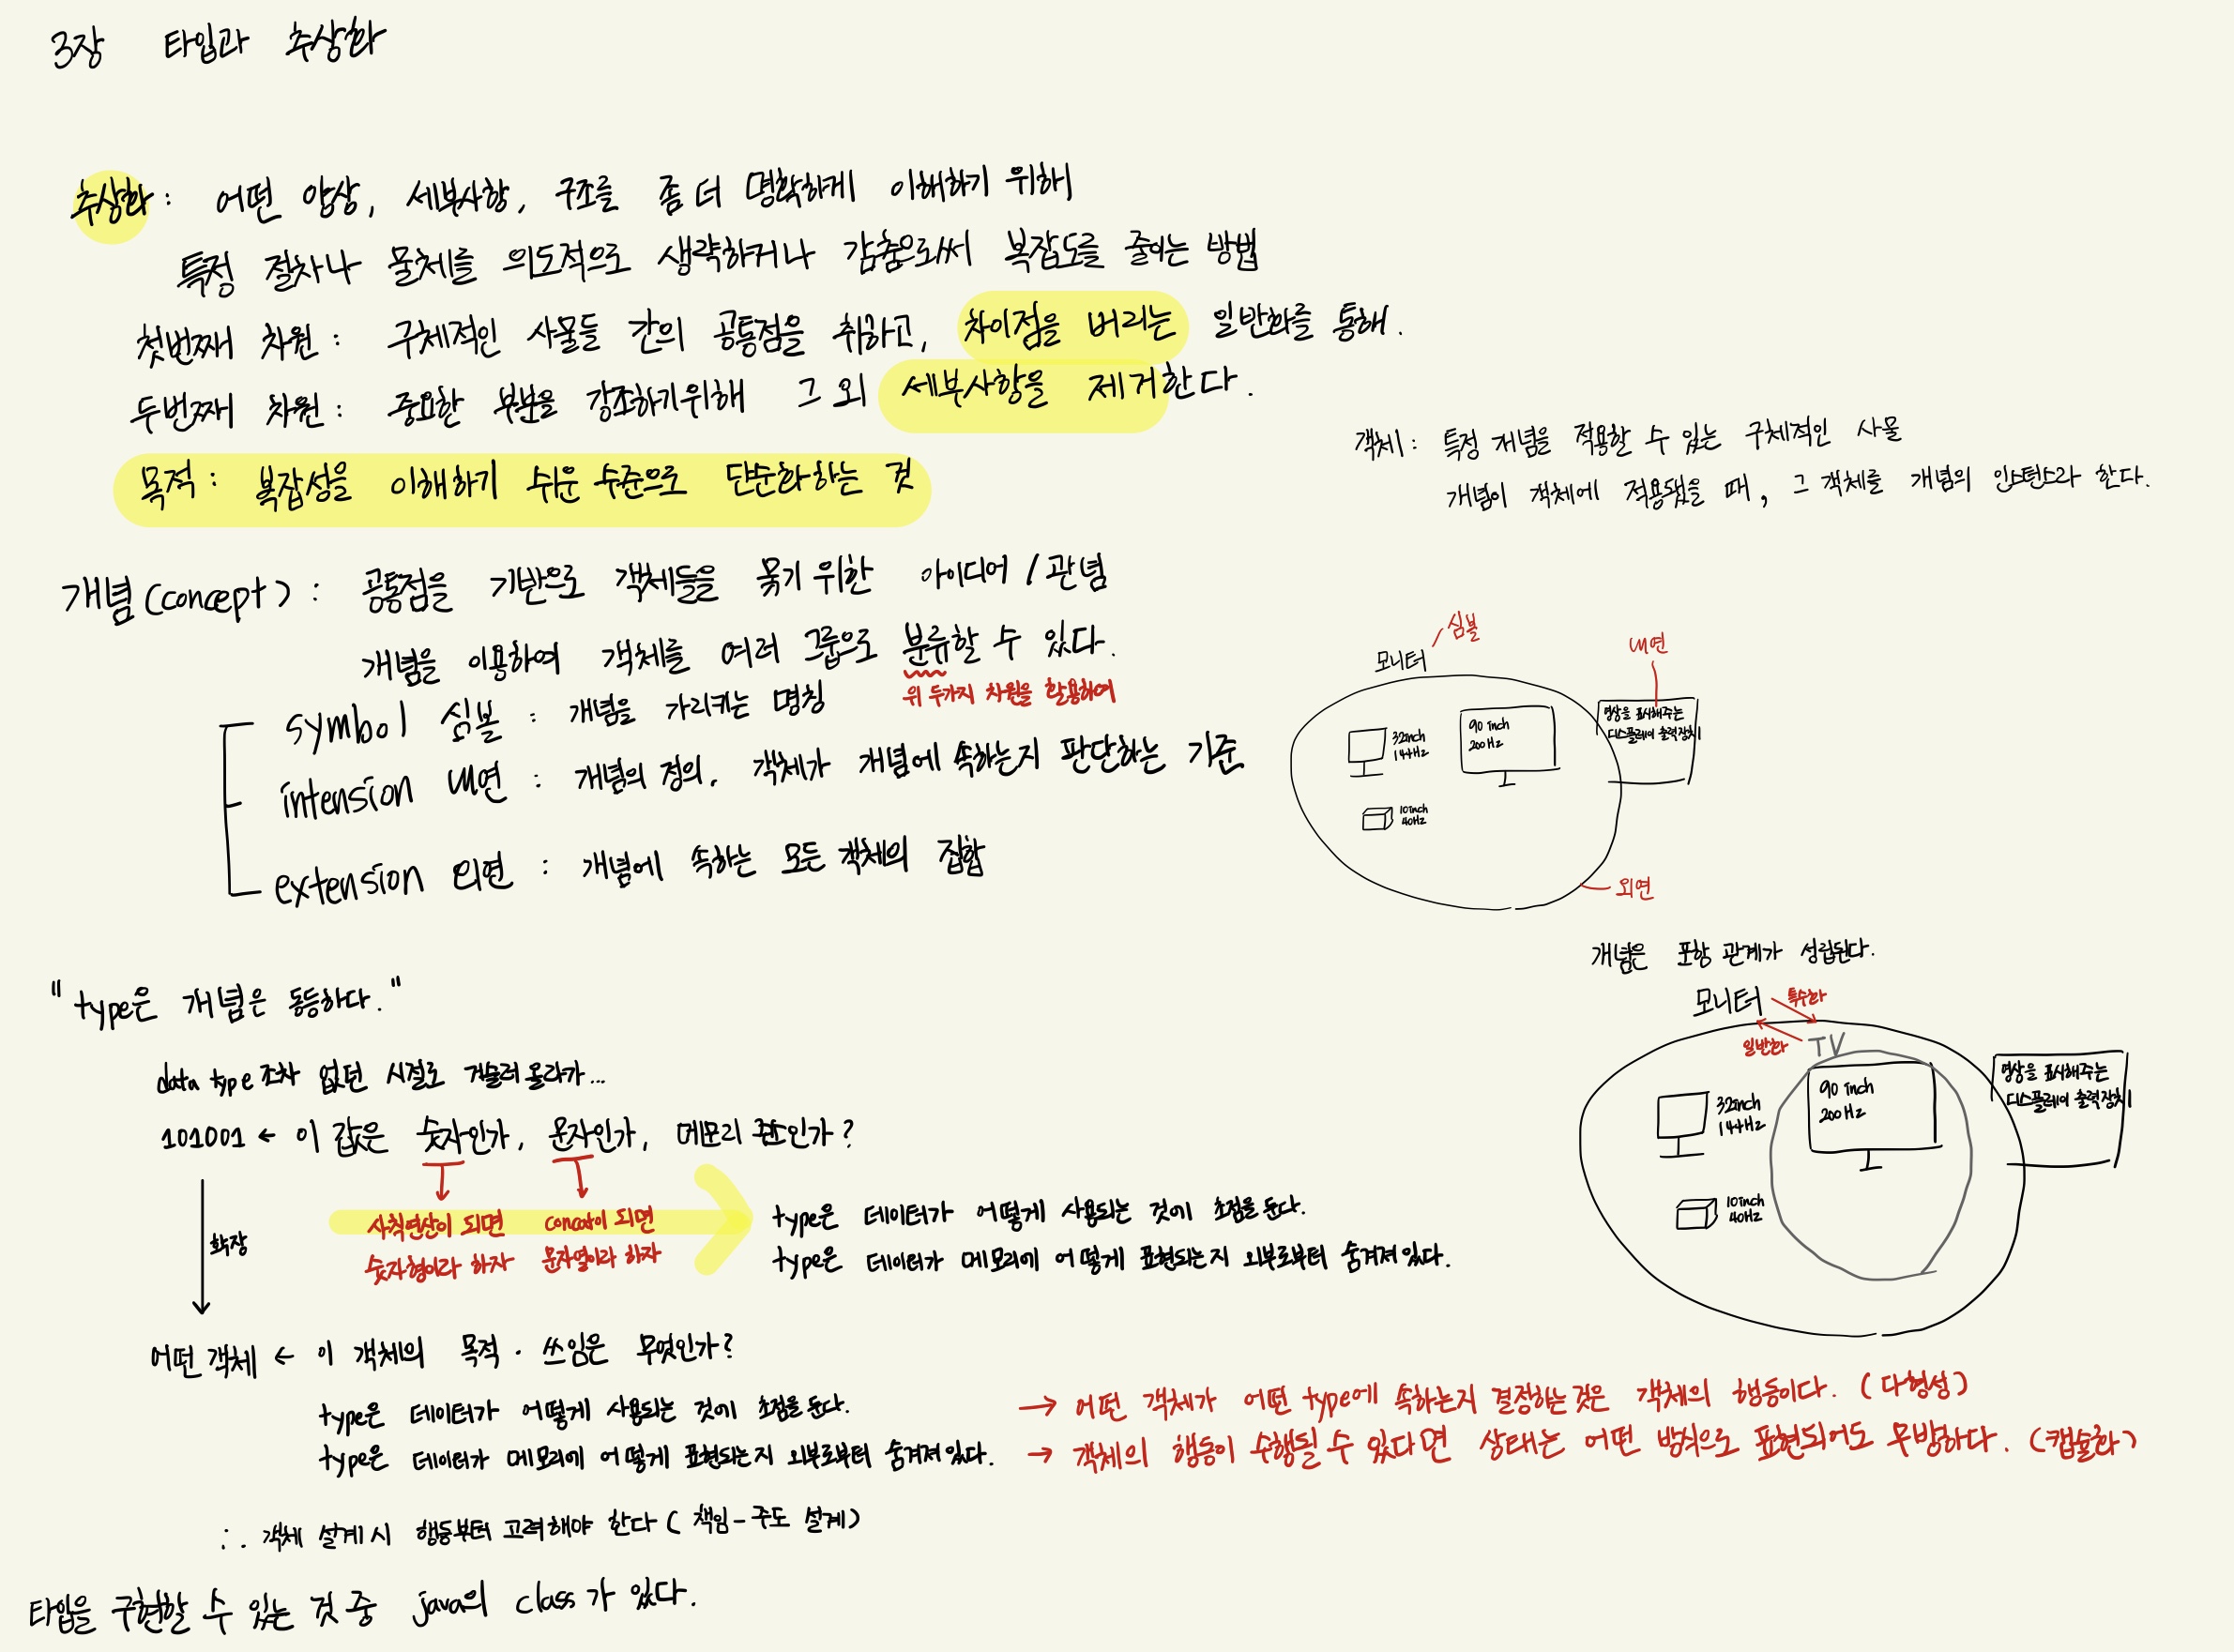 3장 타입과 추상화
추상화 : 어떤 양상, 세부사항, 구조를 좀 더 명확하게 이해하기 위해
특정 절차나 물체를 의도적으로 생략하거나 감춤으로써 복잡도를 줄이는 방법
첫번째 차원 : 구체적인 사물들 간의 공통점을 취하고, 차이점을 버리는 일반화를 통해.
두번째 차원 : 중요한 부분을 강조하기위해 그 외 세부사항을 제거한다.
목적 : 복잡성을 이해하기 쉬운 수준으로 단순화하는 것
객체 : 특정 개념을 적용할 수 있는 구체적인 사물
개념이 객체에 적용됐을 때, 그 객체를 개념의 인스턴스라 한다.
개념(concept) : 공통점을 기반으로 객체들을 묶기 위한 아이디어 / 관념
개념을 이용하여 객체를 여러 그룹으로 분류할 수 있다.
위 두가지 차원을 활용하여
symbol 심볼 : 개념을 가리키는 명칭
intension 내연 : 개념의 정의. 객체가 개념에 속하는지 판단하는 기준
extension 외연 : 개념에 속하는 모든 객체의 집합
심볼
모니터
내연
영상을 표시해주는
디스플레이 출력장치
32inch
144Hz
90 inch
200Hz
10inch
40Hz
외연
"type은 개념은 동등하다."
data type 조차 없던 시절로 거슬러 올라가...
101001 ← 이 값은 숫자인가, 문자인가, 메모리 주소인가?
사칙연산이 되면 concat이 되면
숫자형이라 하자 문자열이라 하자
type은 데이터가 어떻게 사용되는 것에 초점을 둔다.
type은 데이터가 메모리에 어떻게 표현되는지 외부로부터 숨겨져있다.
확장
개념은 포함 관계가 성립된다.
모니터
특수화
일반화
TV
90 inch
200Hz
32inch
144Hz
10inch
40Hz
영상을 표시해주는
디스플레이 출력장치
어떤 객체 ← 이 객체의 목적 · 쓰임은 무엇인가?
type은 데이터가 어떻게 사용되는 것에 초점을 둔다. → 어떤 객체가 어떤 type에 속하는지 결정하는것은 객체의 행동이다. (다형성)
type은 데이터가 메모리에 어떻게 표현되는지 외부로부터 숨겨져있다. → 객체의 행동이 수행될 수 있다면 상태는 어떤 방식으로 표현되어도 무방하다. (캡슐화)
∴ 객체 설계 시 행동부터 고려해야 한다 (책임-주도 설계)
타입을 구현할 수 있는 것 중 java의 class가 있다.